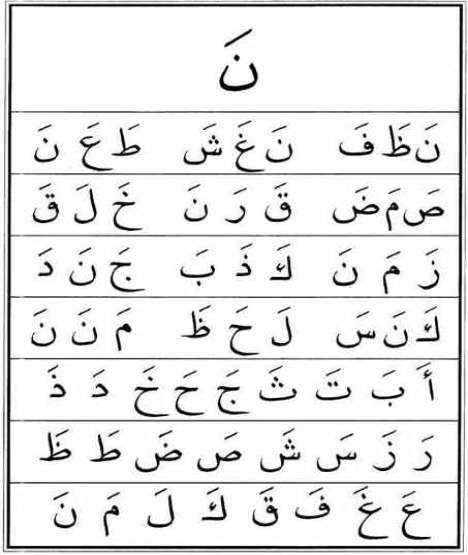 نَ
نَ ظَ فَ نَ غَ شَ طَ عَ نَ
صَ مَ ضَ قَ رَ نَ خَ لَ قَ
زَ مَ نَ كَ ذَ بَ جَ نَ دَ
كَ نَ سَ لَ حَ ظَ مَ نَ نَ
أَ بَ تَ ثَ جَ حَ خَ دَ ذَ
رَ زَ سَ شَ صَ ضَ طَ ظَ
عَ غَ فَ قَ كَ لَ مَ نَ